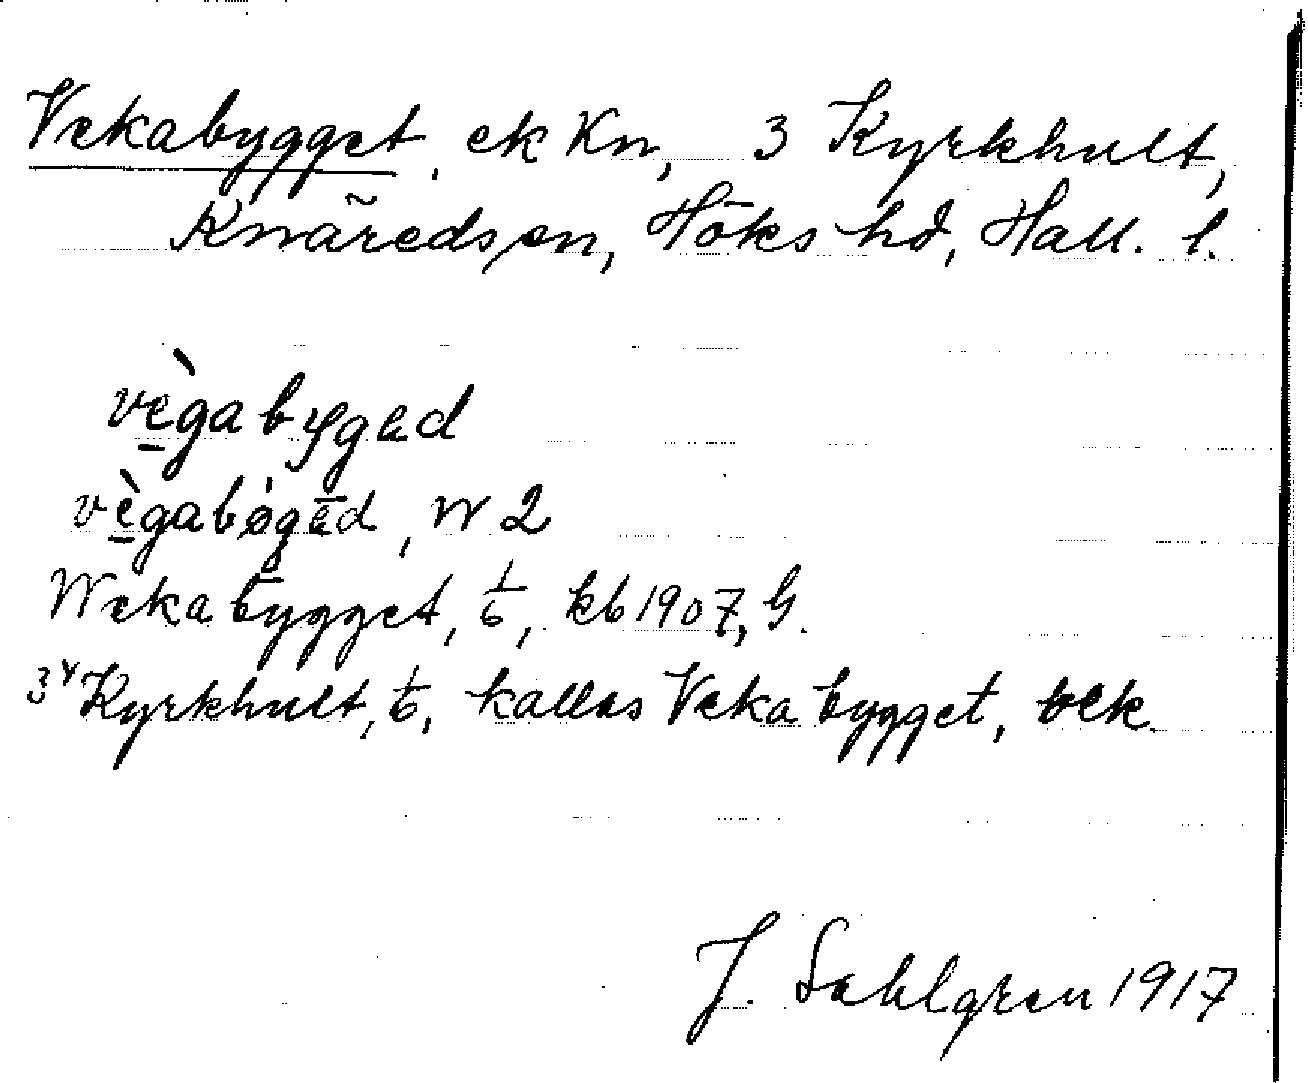 Vekabygget, ek Kn, 3 Kyrkhult,
Knäreds sn, Höks hd, Hall. l.
vègabygad
vègabøgad, W 2
Wekabygget, 1/6, kb 1907, G.
3 Kyrkhult, 1/6, kallas Vekabygget, bek.
J. Sahlgren 1917